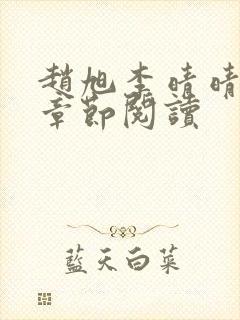 趙旭李晴晴
章節閱讀
藍天白菜